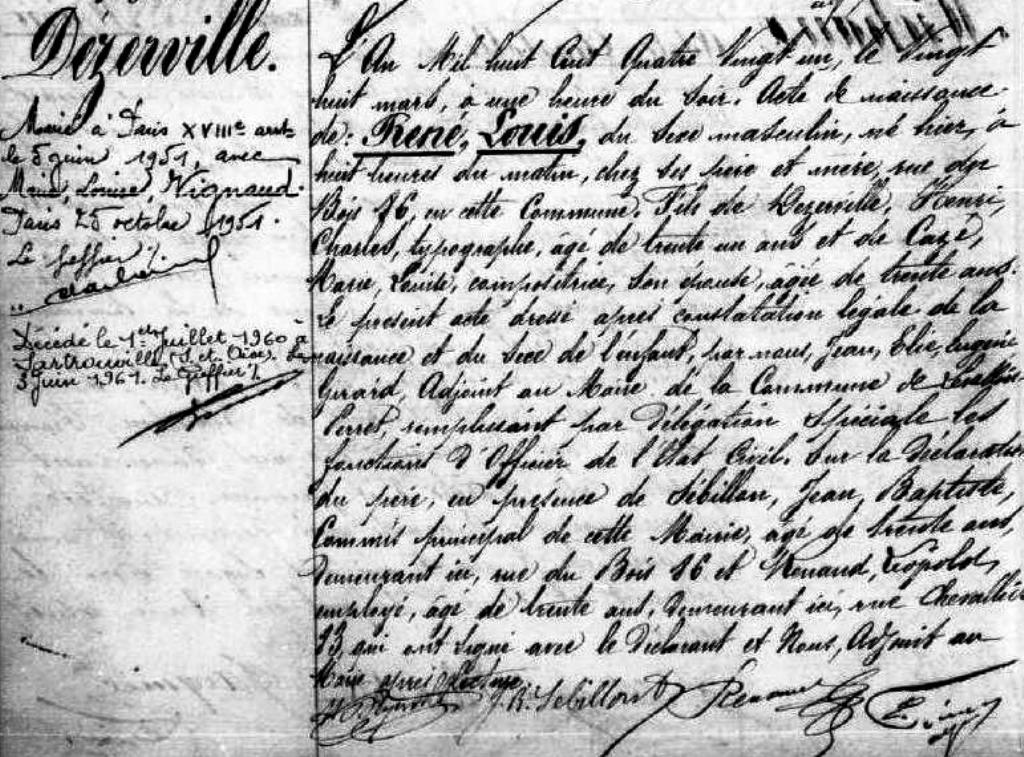 Dézerville.
Marié à Paris XVIIIe arrt
le 5 juin 1951, avec
Marie, Louise, Vignaud.
Paris 25 octobre 1951.
Le Greffier %.
Décédé le 1er Juillet 1960 à
Sartrouville, S. et Oise. Le
3 juin 1961. Le Greffier %.
L'An Mil huit Cent Quatre Vingt un, le Vingt
huit mars, à une heure du soir. Acte de naissance
de: René, Louis, du sexe masculin, né hier, à
huit heures du matin, chez ses père et mère, rue du
Bois 76, en cette Commune. Fils de Dézerville, Henri,
Charles, typographe, âgé de trente un ans et de Cazé,
Marie, Louise, compositrice, son épouse, âgée de trente ans.
Le présent acte dressé après constatation légale de la
naissance et du sexe de l'enfant, par nous, Jean, Elie, Eugène
Girard, Adjoint au Maire de la Commune de Levallois
Perret, remplissant par délégation Spéciale les
fonctions d'Officier de l'Etat Civil. Sur la déclaration
du père, en présence de Sébillon, Jean, Baptiste,
Commis principal de cette Mairie, âgé de trente ans,
demeurant ici, rue du Bois 86 et Renaud, Léopold,
employé, âgé de trente ans, demeurant ici, rue Chevallier
93, qui ont signé avec le Déclarant et Nous, Adjoint au
Maire après Lecture.
J.B. Sébillon Renaud